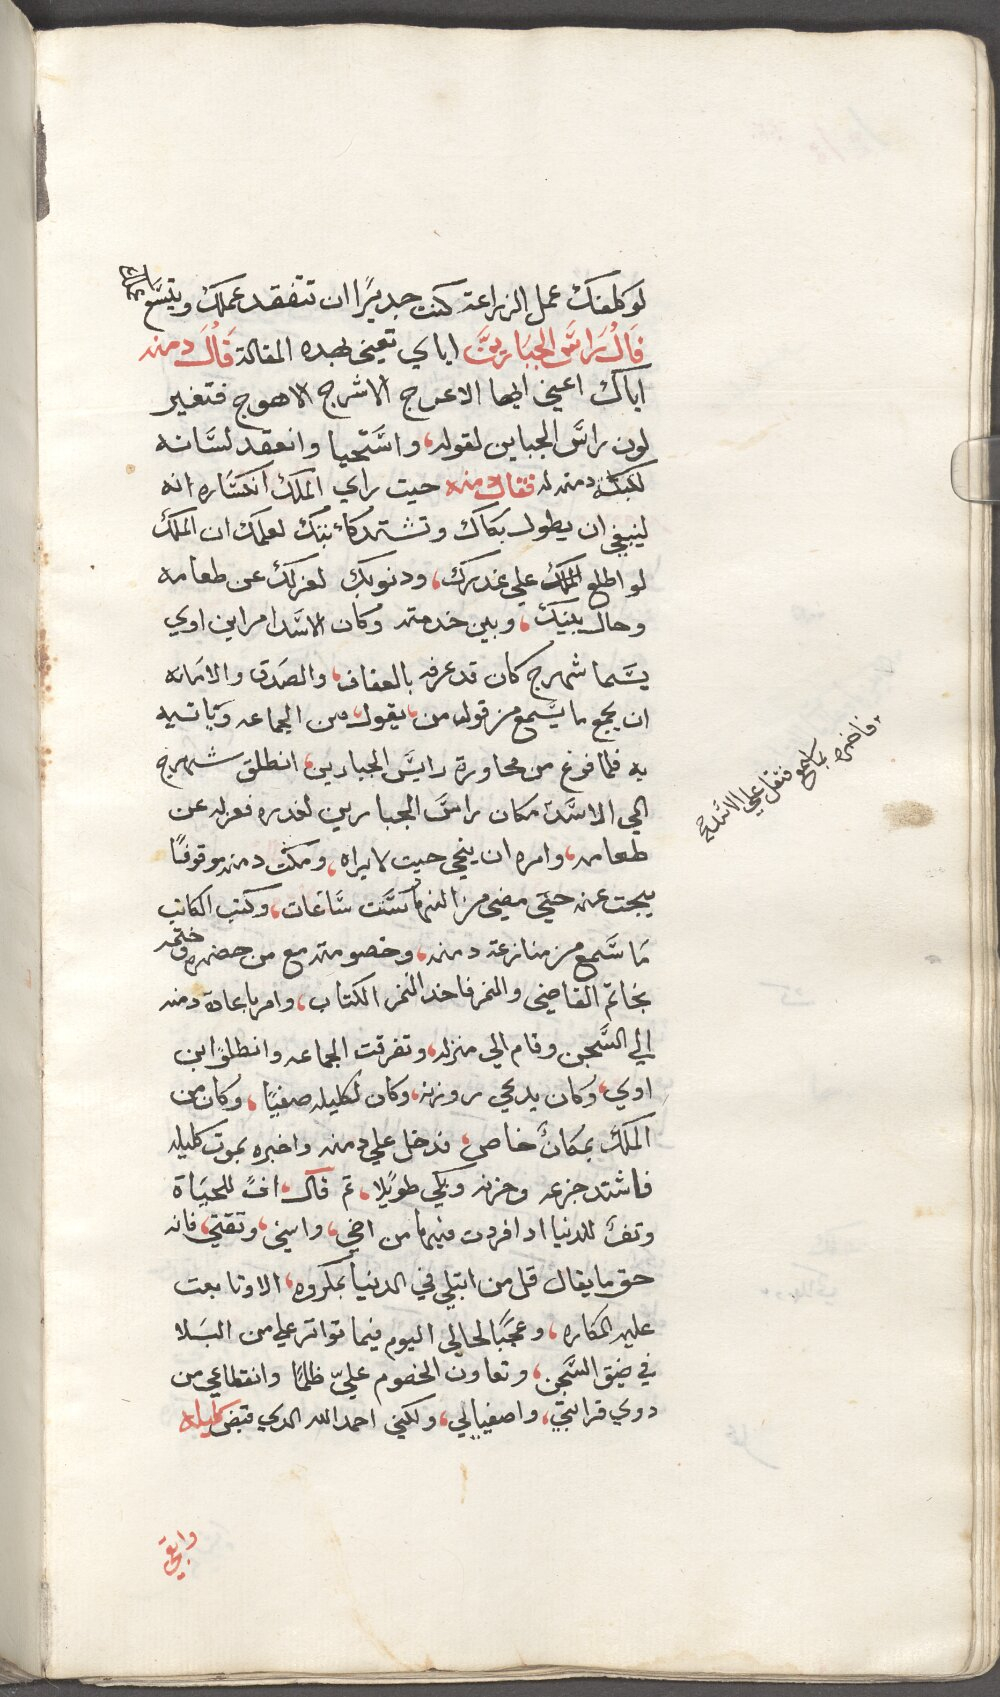 لو كلفك عمل الزراعة كنت جديرًا ان تتفقد عملك ويتسّع
قال راسّ الجبارينّ اياي تعني بهده المقالة قال دمنه
اياك اعني ايها الاعرج الاشرج الاهوج فتغير
لون راسّ الجبابين لقوله، واسّتحيا وانعقد لسّانه
لكبته دمنه له فقال دمنه حيت راي الملك انكسّاره انه
لينبغي ان يطول بكاك وتشتد كابتك لعلمك ان الملك
لو اطلع الملك علي غدرك، ودنوبك لعزلك عن طعامه
وحال بينك، وبين خدمته وكان الاسّد امر ابن اوي
يسّما شهرج كان قد عرفه بالعفاف، والصدق والامانه
ان يجمع ما يسّمع من قوله من، يقول، من الجماعه وياتيه
به فلما فرغ من محاورة رايسّ الجبارين، انطلق شهرج
الي الاسّد مكان راسّ الجبارين لغدره فعزله عن
طعامه، وامره ان ينحي حيت لا يراه، ومكت دمنه موقوفًا
يبحت عنه حتي مضي من النهار ستّت سّاعات، وكتب الكاتب
ما سّمع من منازعة دمنه، وخصومته مع من حضرهم وختمه
بخاتم القاضي والنمر فاخد النمر الكتاب، وامر باعادة دمنه
الي السّجن وقام الي منزله، وتفرقت الجماعه وانطلق ابن
اوي، وكان يدعي روزنه، وكان لكليله صفيًا، وكان من
الملك بمكان خاص، فدخل علي دمنه واخبره بموت كليله
فاشتد جزعه وحزنه وبكي طويلا، تم قال، افً للحياة
وتفً للدنيا اد افردت فيها من اخي، وانسي، وتقتي، فانه
حق ما يقال قل من ابتلي في الدنيا بمكروه، الا وتابعت
عليه المكاره، وعجبًا لحالي اليوم فيما تواتر علي من البلا
في ضيق السّجن، وتعاون الخصوم عليّ ظلمًا وانقطاعي من
دوي قرابتي، واصفيايي، ولكني احمد الله الدي قبض كليله
وابقي
فاخبره بما سمع فتقل علي الاسّد